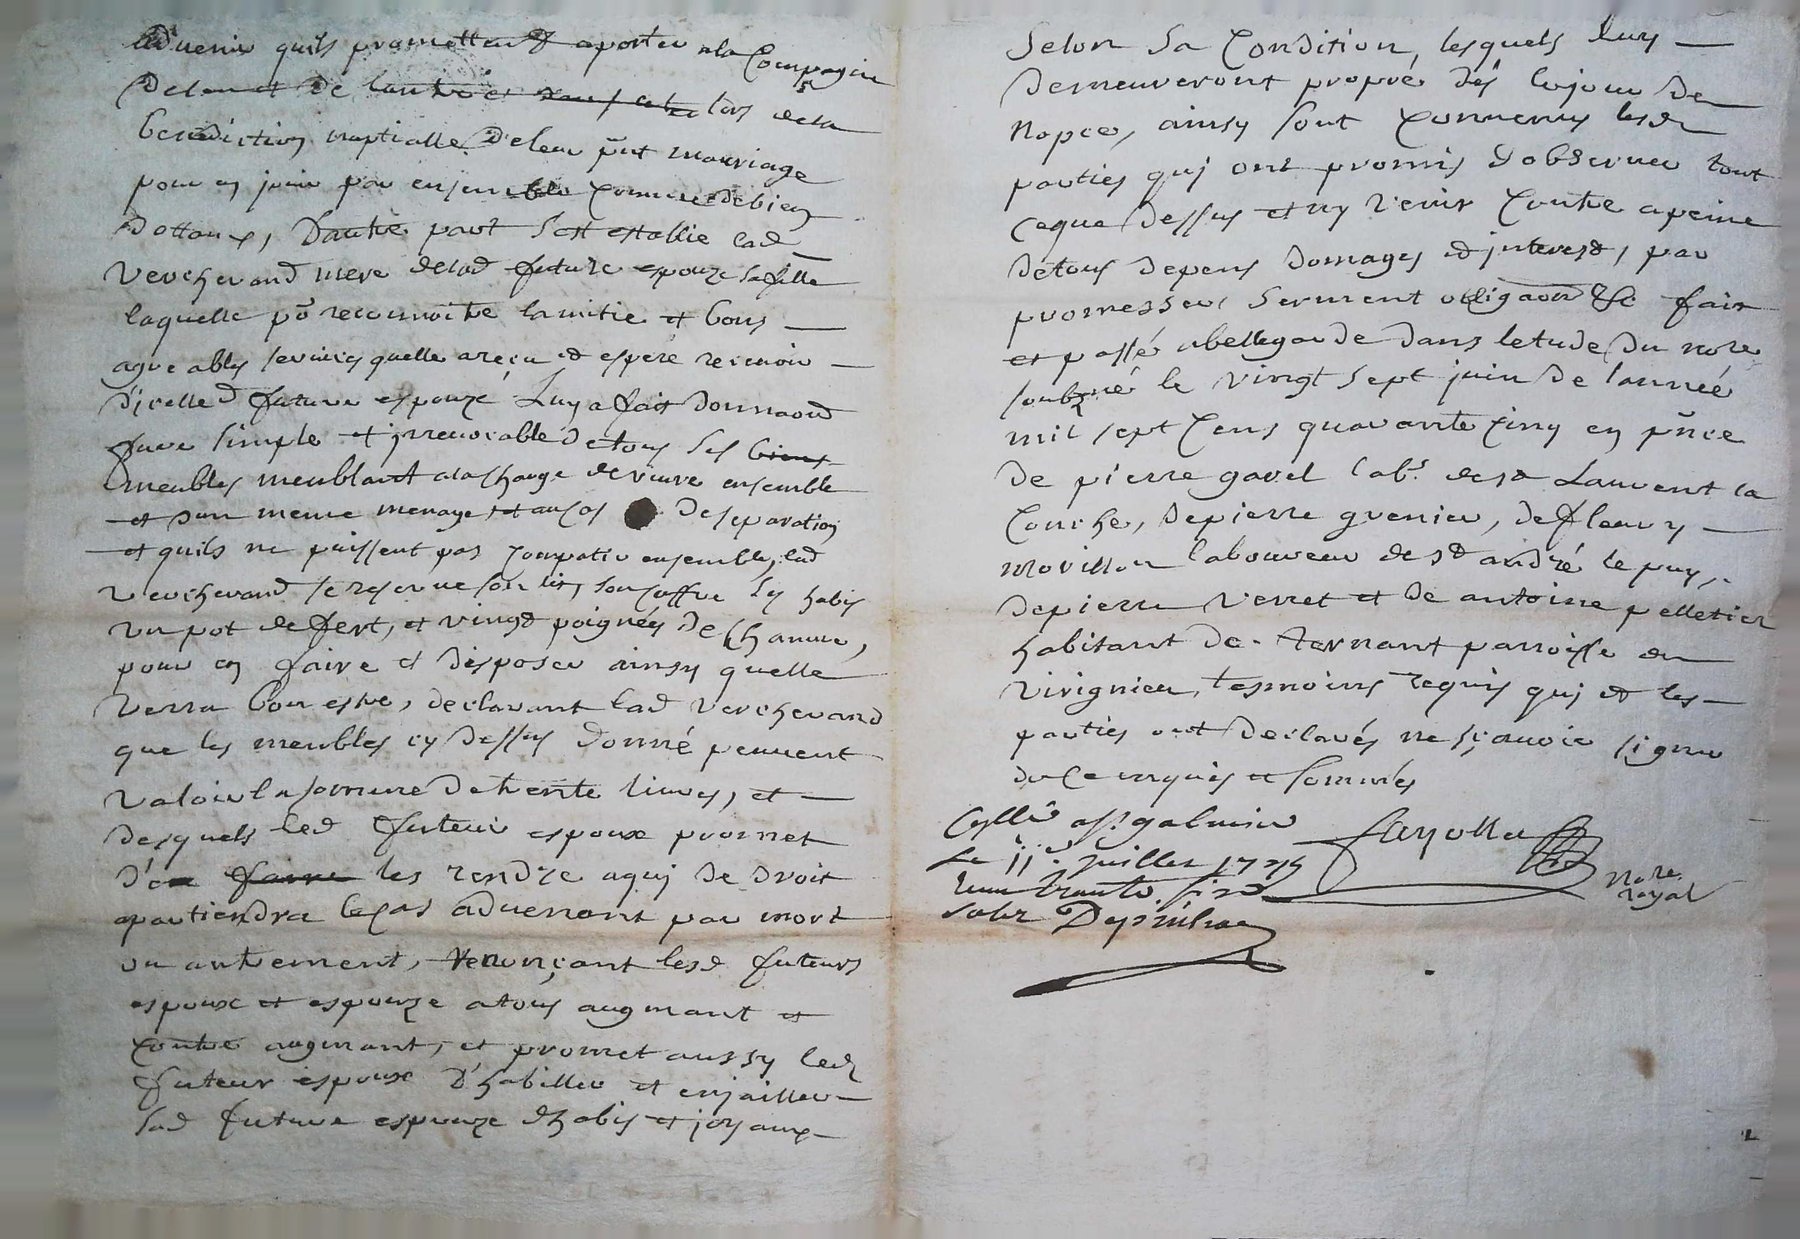 aduenir quils promettend aporter ala Compagnie
De lun et De lautre et lors dela
Benediction nuptialle Deleur pñt mariage
pour en jouir par ensemble comme de bien
Dottaux, Dautre part sest establie lad
Vercherand mere delad future espouze sa fille
laquelle pō reconnoitre lamitie et bons
agreables seruices quelle areçu et espere receuoir
d'icelle d future espouze Luy a fait donnaon
pure simple et jrreuocable de tous ses biens
meubles meublant ala charge de viure ensemble
et dun meme menage et au cas De separation
et quils ne puissent pas compatir ensemble, lad
vercherand se reserue son lit, son coffre ses habis
un pot de fert, et vingt poignées de chanure,
pour en faire et disposer ainsy quelle
verra bon estre, declarant lad vercherand
que les meubles cy dessus donné peuuent
valoir la somme de trente liures, et
desquels led futeur espoux promet
d'en faire les rendre aqui de droit
apartiendra le cas aduenant par mort
ou autrement, renonçant lesd futeurs
espoux et espouze atous augmant et
contre augmant, et promet aussy led
futeur espoux d'habiller et enjailler
sad future espouze dhabis et joyaux
Selon Sa Condition, lesquels luy
demeureront propre dés lejour de
nopce, ainsy sont conuenus lesd
parties qui ont promis dobseruer tout
ceque Dessus et ny venir contre apeine
détous depens domages et jnterest, par
promesses, serment obligaon &c fait
et passé abellegarde dans letude du nore
soubzné le vingt sept juin de lanneé
mil sept cens quarante cinq en pñce
de pierre garel labr. de st Laurent la
Conche, de pierre grenier, de fleury
morillon laboureur de st andré le puy,
de pierre verret et de antoine pelletier
habitant de ternant parroisse de
virignieu, tesmoins requis qui et les
parties ont declarés ne sçauoir signer
de ce enquis et sommés
Collé a st galmier
Le 11e. juillet 1745
Reçu trente six s
solz
nore.
royal